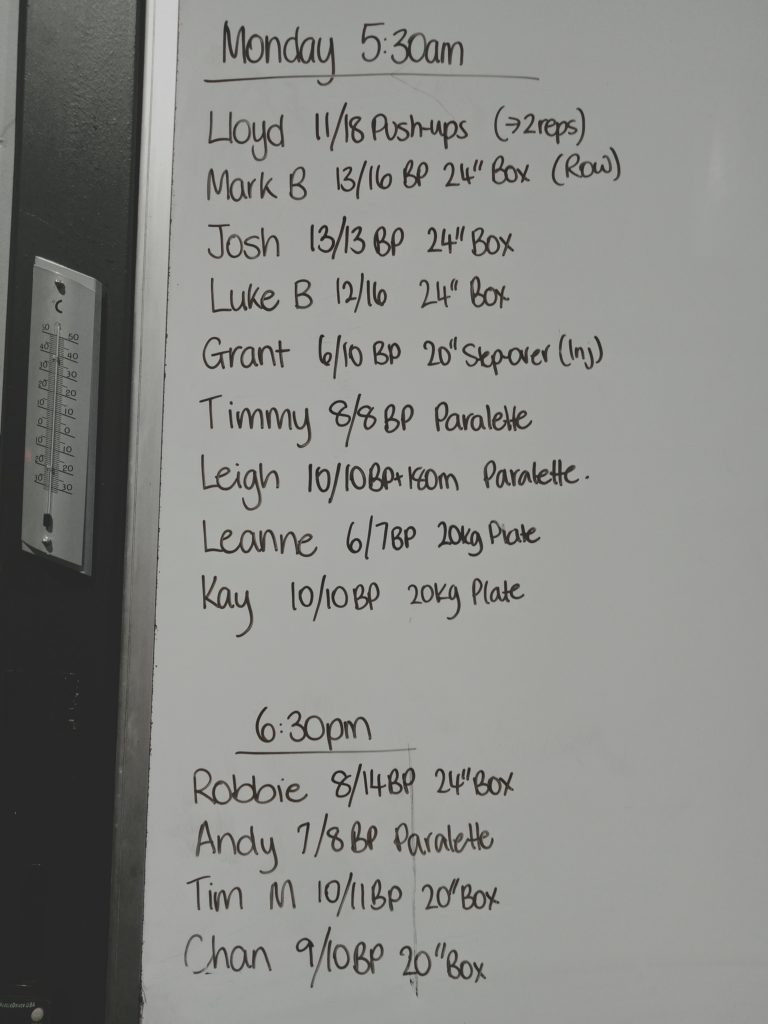 Monday 5:30am
Lloyd 11/18 Push-ups (→2reps)
Mark B 13/16 BP 24" Box (Row)
Josh 13/13 BP 24" Box
Luke B 12/16 24" Box
Grant 6/10 BP 20" Step-over (Inj)
Timmy 8/8 BP Paralette
Leigh 10/10BP+180m Paralette.
Leanne 6/7BP 20kg Plate
Kay 10/10 BP 20kg Plate
6:30pm
Robbie 8/14BP 24" Box
Andy 7/8 BP Paralette
Tim M 10/11BP 20" Box
Chan 9/10BP 20" Box
°C